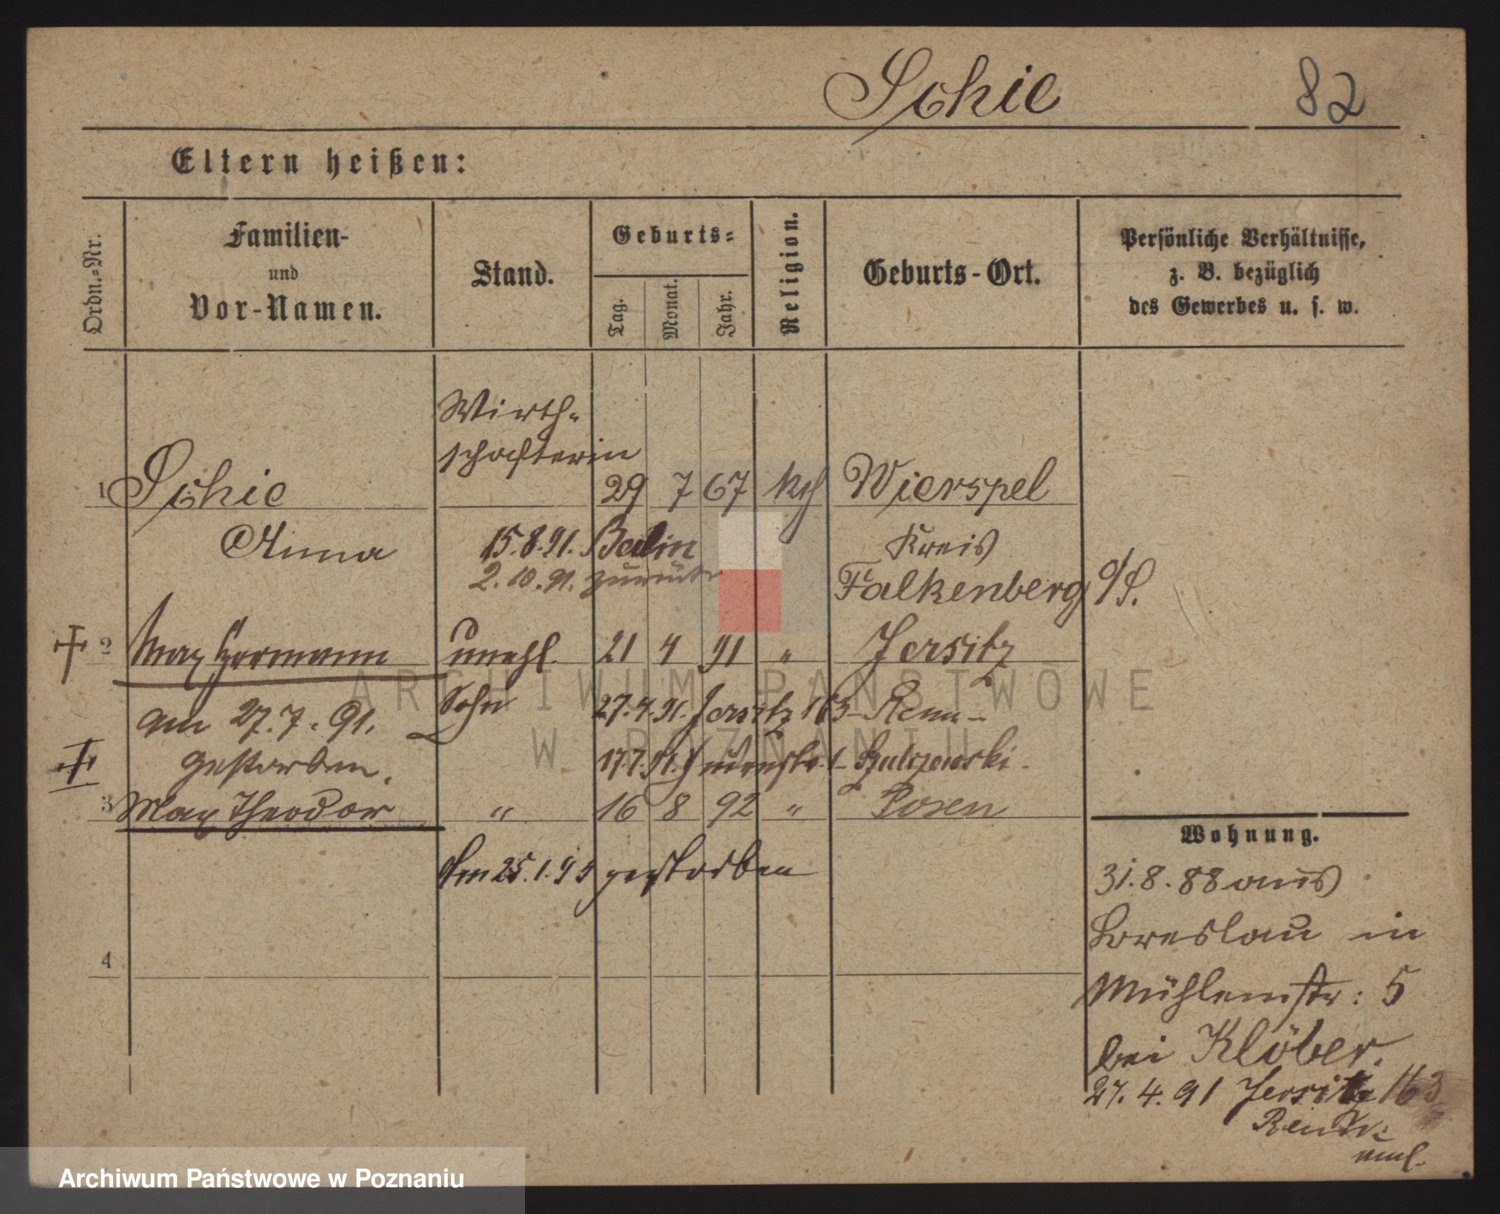 Schie 82
Eltern heißen:
Ordn.-Nr.
Familien-
und
Vor-Namen.
Stand.
Geburts-
Tag.
Monat.
Jahr.
Religion.
Geburts-Ort.
Persönliche Verhältnisse,
z. B. bezüglich
des Gewerbes u. s. w.
Wirth-
schafterin
1 Schie 29 7 67 kth Wierspel
Anna 15.8.91. Berlin Kreis
2.10.91. zurück Falkenberg o/S.
2 Max Hermann unehl. 21 4 91 " Jersitz
Sohn 27.4.91. Jersitz 163
am 27.7.91.
gestorben.
17.7.91.
3 Max Theodor " 16 8 92 " Posen
Am 25.1.93 gestorben
4
Wohnung.
31.8.88 aus
Breslau in
Mühlenstr: 5
bei Klöber.
27.4.91 Jersitz 163
ARCHIWUM PAŃSTWOWE
W POZNANIU
Archiwum Państwowe w Poznaniu